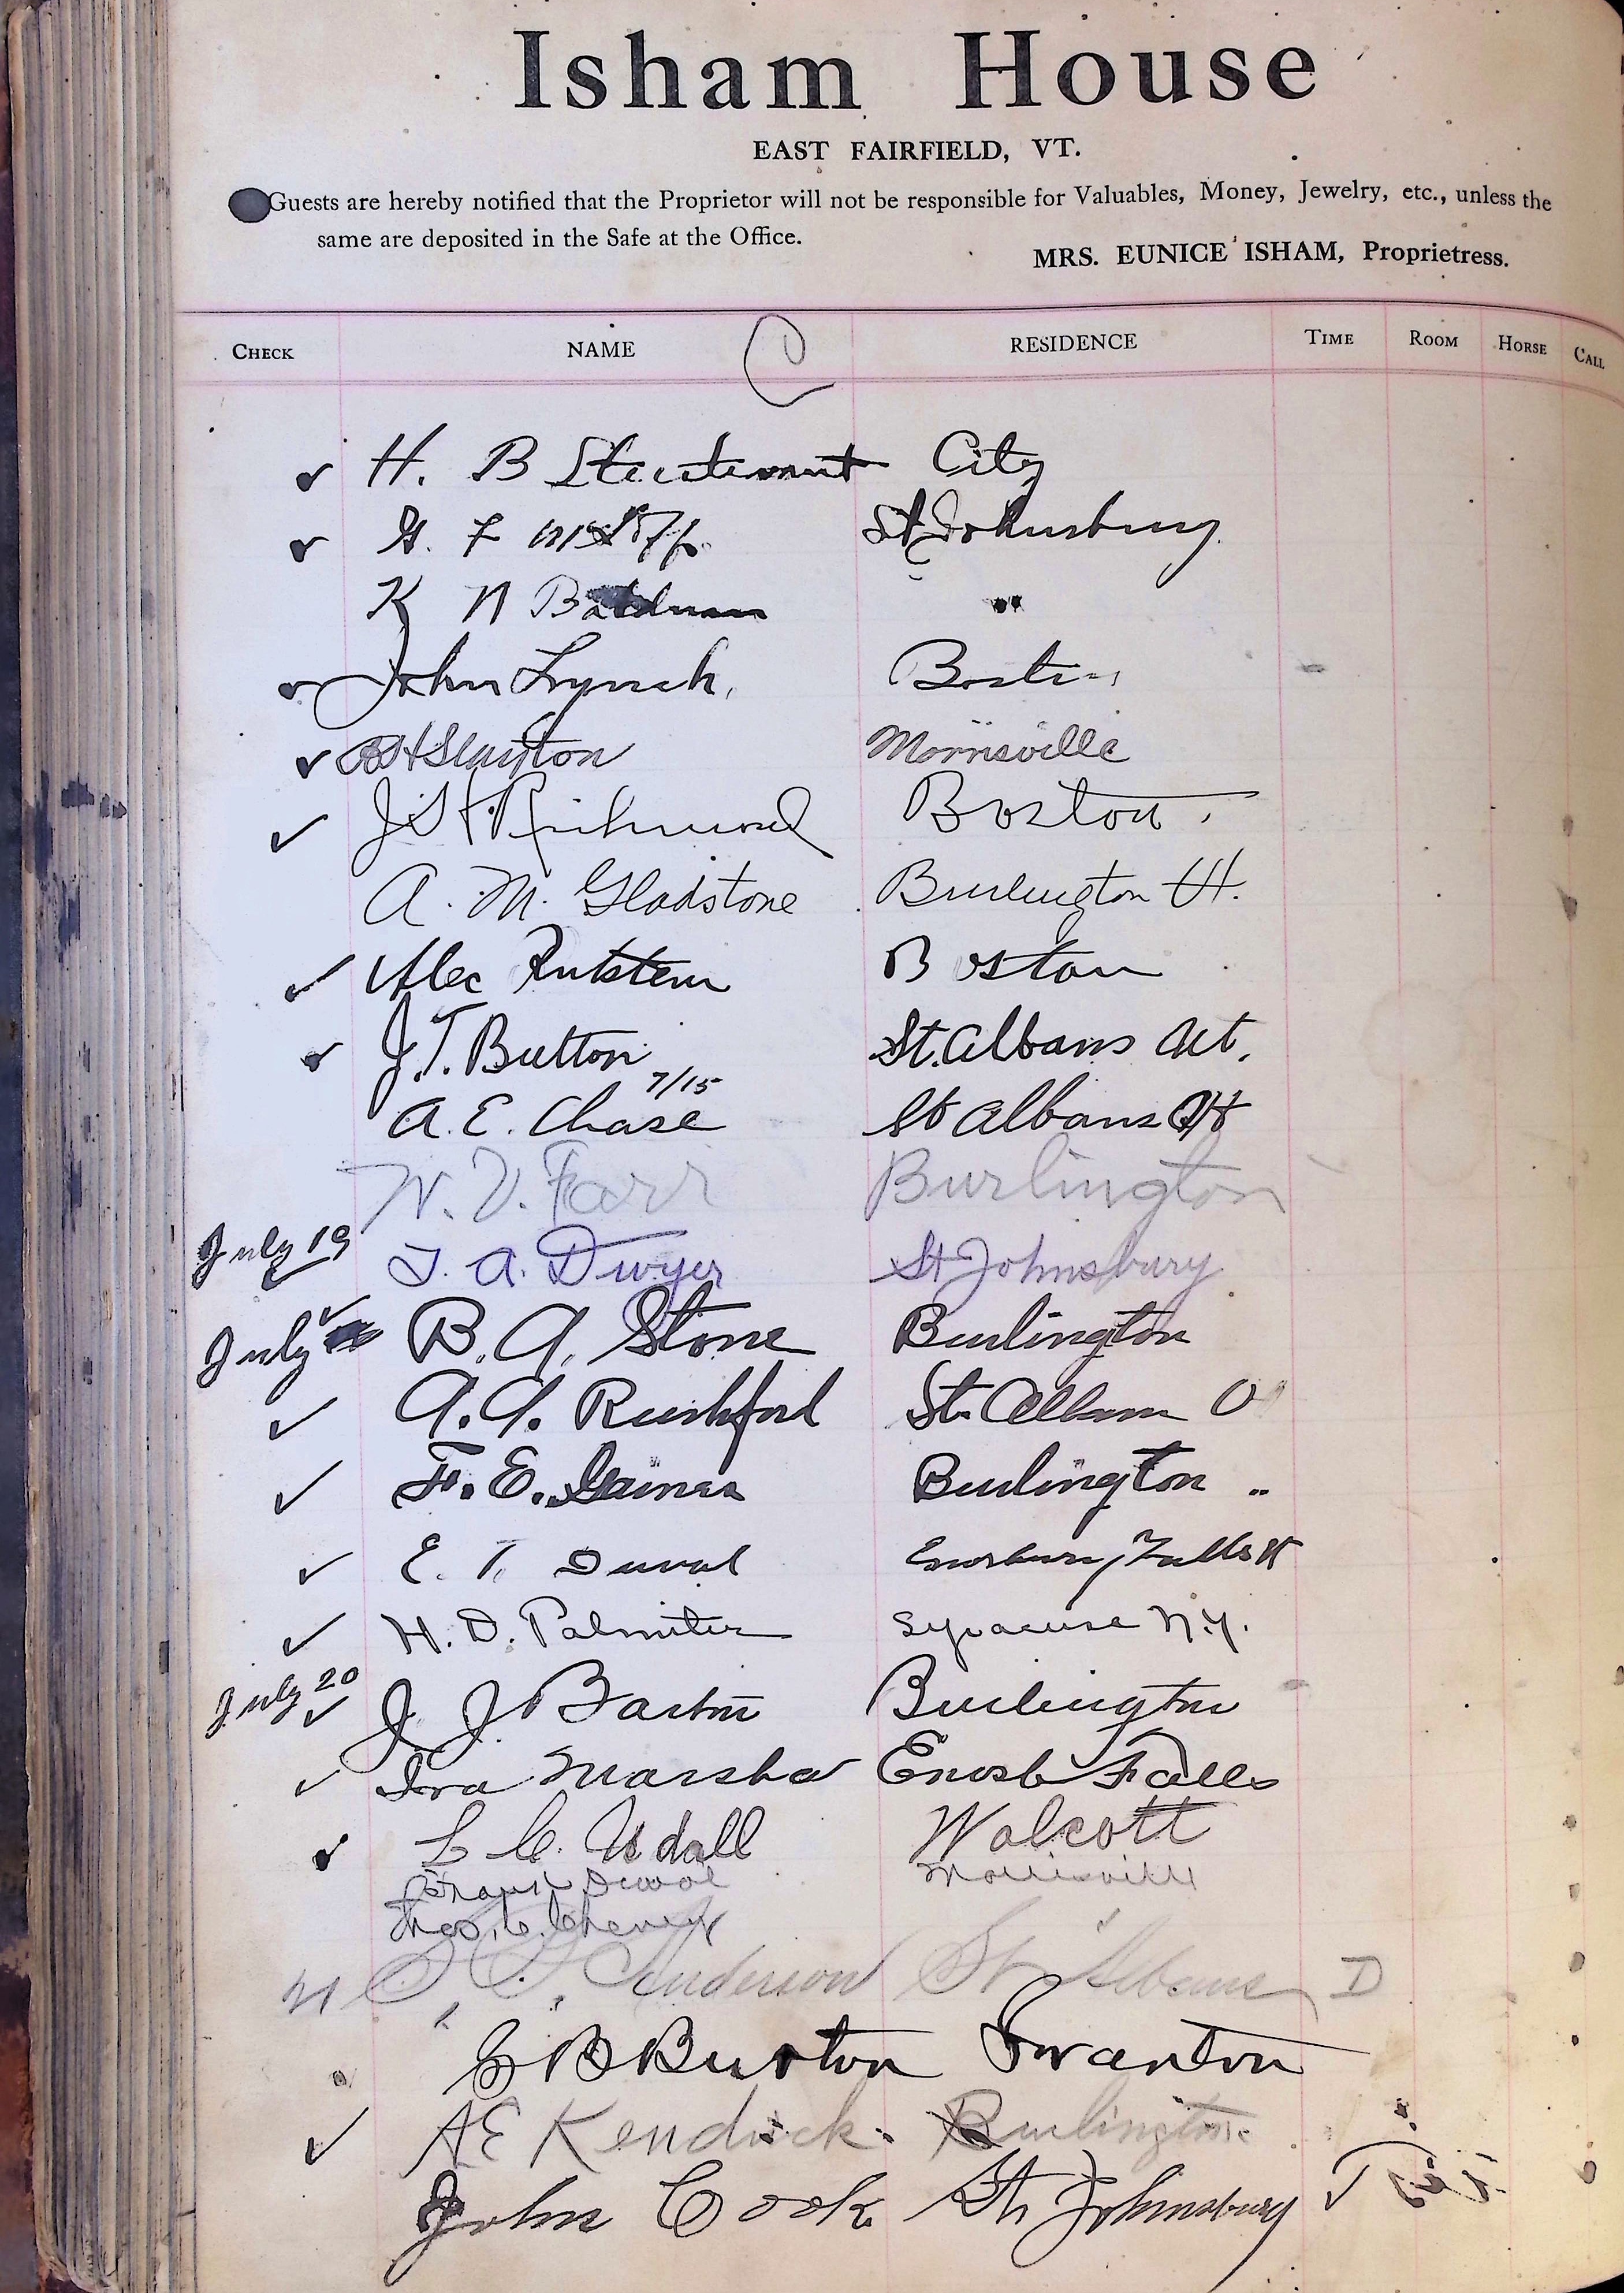 Isham House
EAST FAIRFIELD, VT.
Guests are hereby notified that the Proprietor will not be responsible for Valuables, Money, Jewelry, etc., unless the
same are deposited in the Safe at the Office.
MRS. EUNICE ISHAM, Proprietress.
CHECK NAME RESIDENCE TIME ROOM HORSE CALL
H. B City
G. F St Johnsbury
K N "
John Lynch, Boston
Slayton Morrisville
J S Richmond Boston.
A. M. Gladstone Burlington Vt.
Alec Rutstein Boston
J. T. Button St. Albans Vt.
7/15
A. E. Chase St Albans Vt
W. V. Farr Burlington
July 19 T. A. Dwyer St Johnsbury
July B. A. Stone Burlington
A. A. Rushford St. Albans V
F. E. Gaines Burlington "
E. T. Duval Enosburg Falls Vt
H. D. Palmiter Syracuse N.Y.
July 20 J. J. Barton Burlington
Ira Marsha Enosb Falls
L C. Udall Walcott
Frank Duval Morrisville
Theo. C. Cheney
Anderson St Albans D
B Burton Swanton
AE Kendrick. Burlington
John Cook St Johnsbury